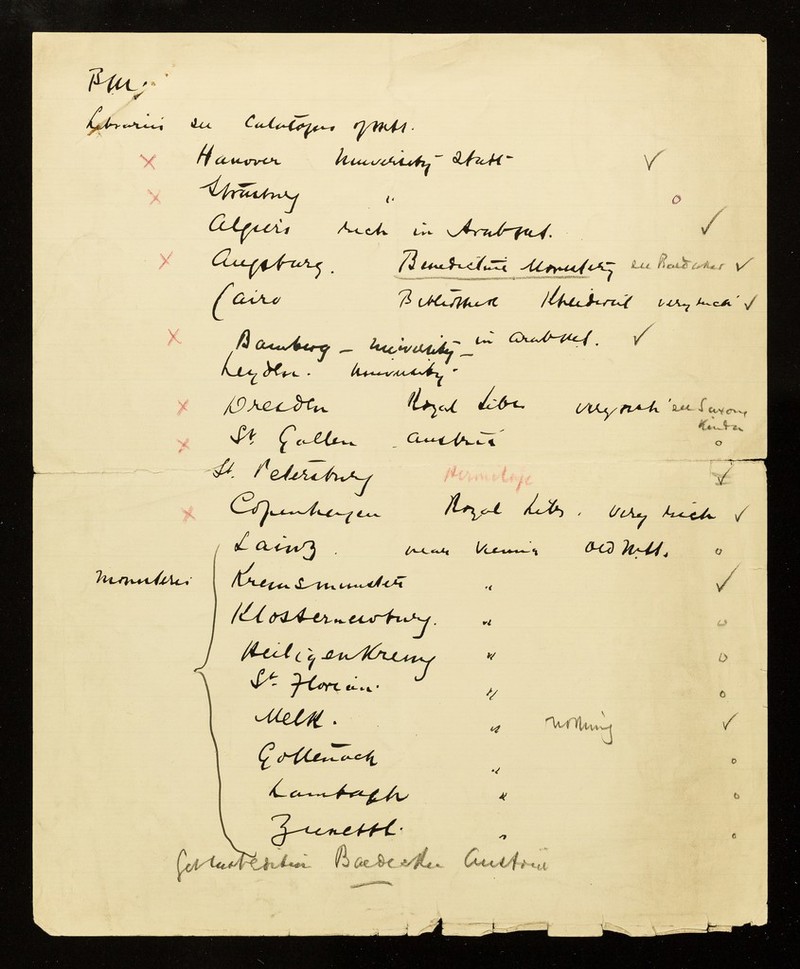 B.M.
Libraries see Catalogues of MSS.
x Hanover University Statt ✓
x Strasburg " o
Algiers rich in Arab MSS. ✓
x Augsburg. Benedictine Monastery see Baedeker ✓
Cairo Bibliotheck Khedivial very rich ✓
in Arab MSS. ✓
x Bamberg - University -
Leyden. University.
x Dresden Royal Libr very rich see Saxony
x St. Gallen Austria o
St. Petersburg Hermitage ✓
x Copenhagen Royal Libr. very rich ✓
Lainz. near Vienna Old MSS. o
Monasteries Kremsmunster " ✓
Klosterneuburg. " o
Heiligenkreuz " o
St. Florian. " o
Melk. " nothing ✓
Gottenach " o
Lambagh " o
" o
Get last edition Baedeker Austria